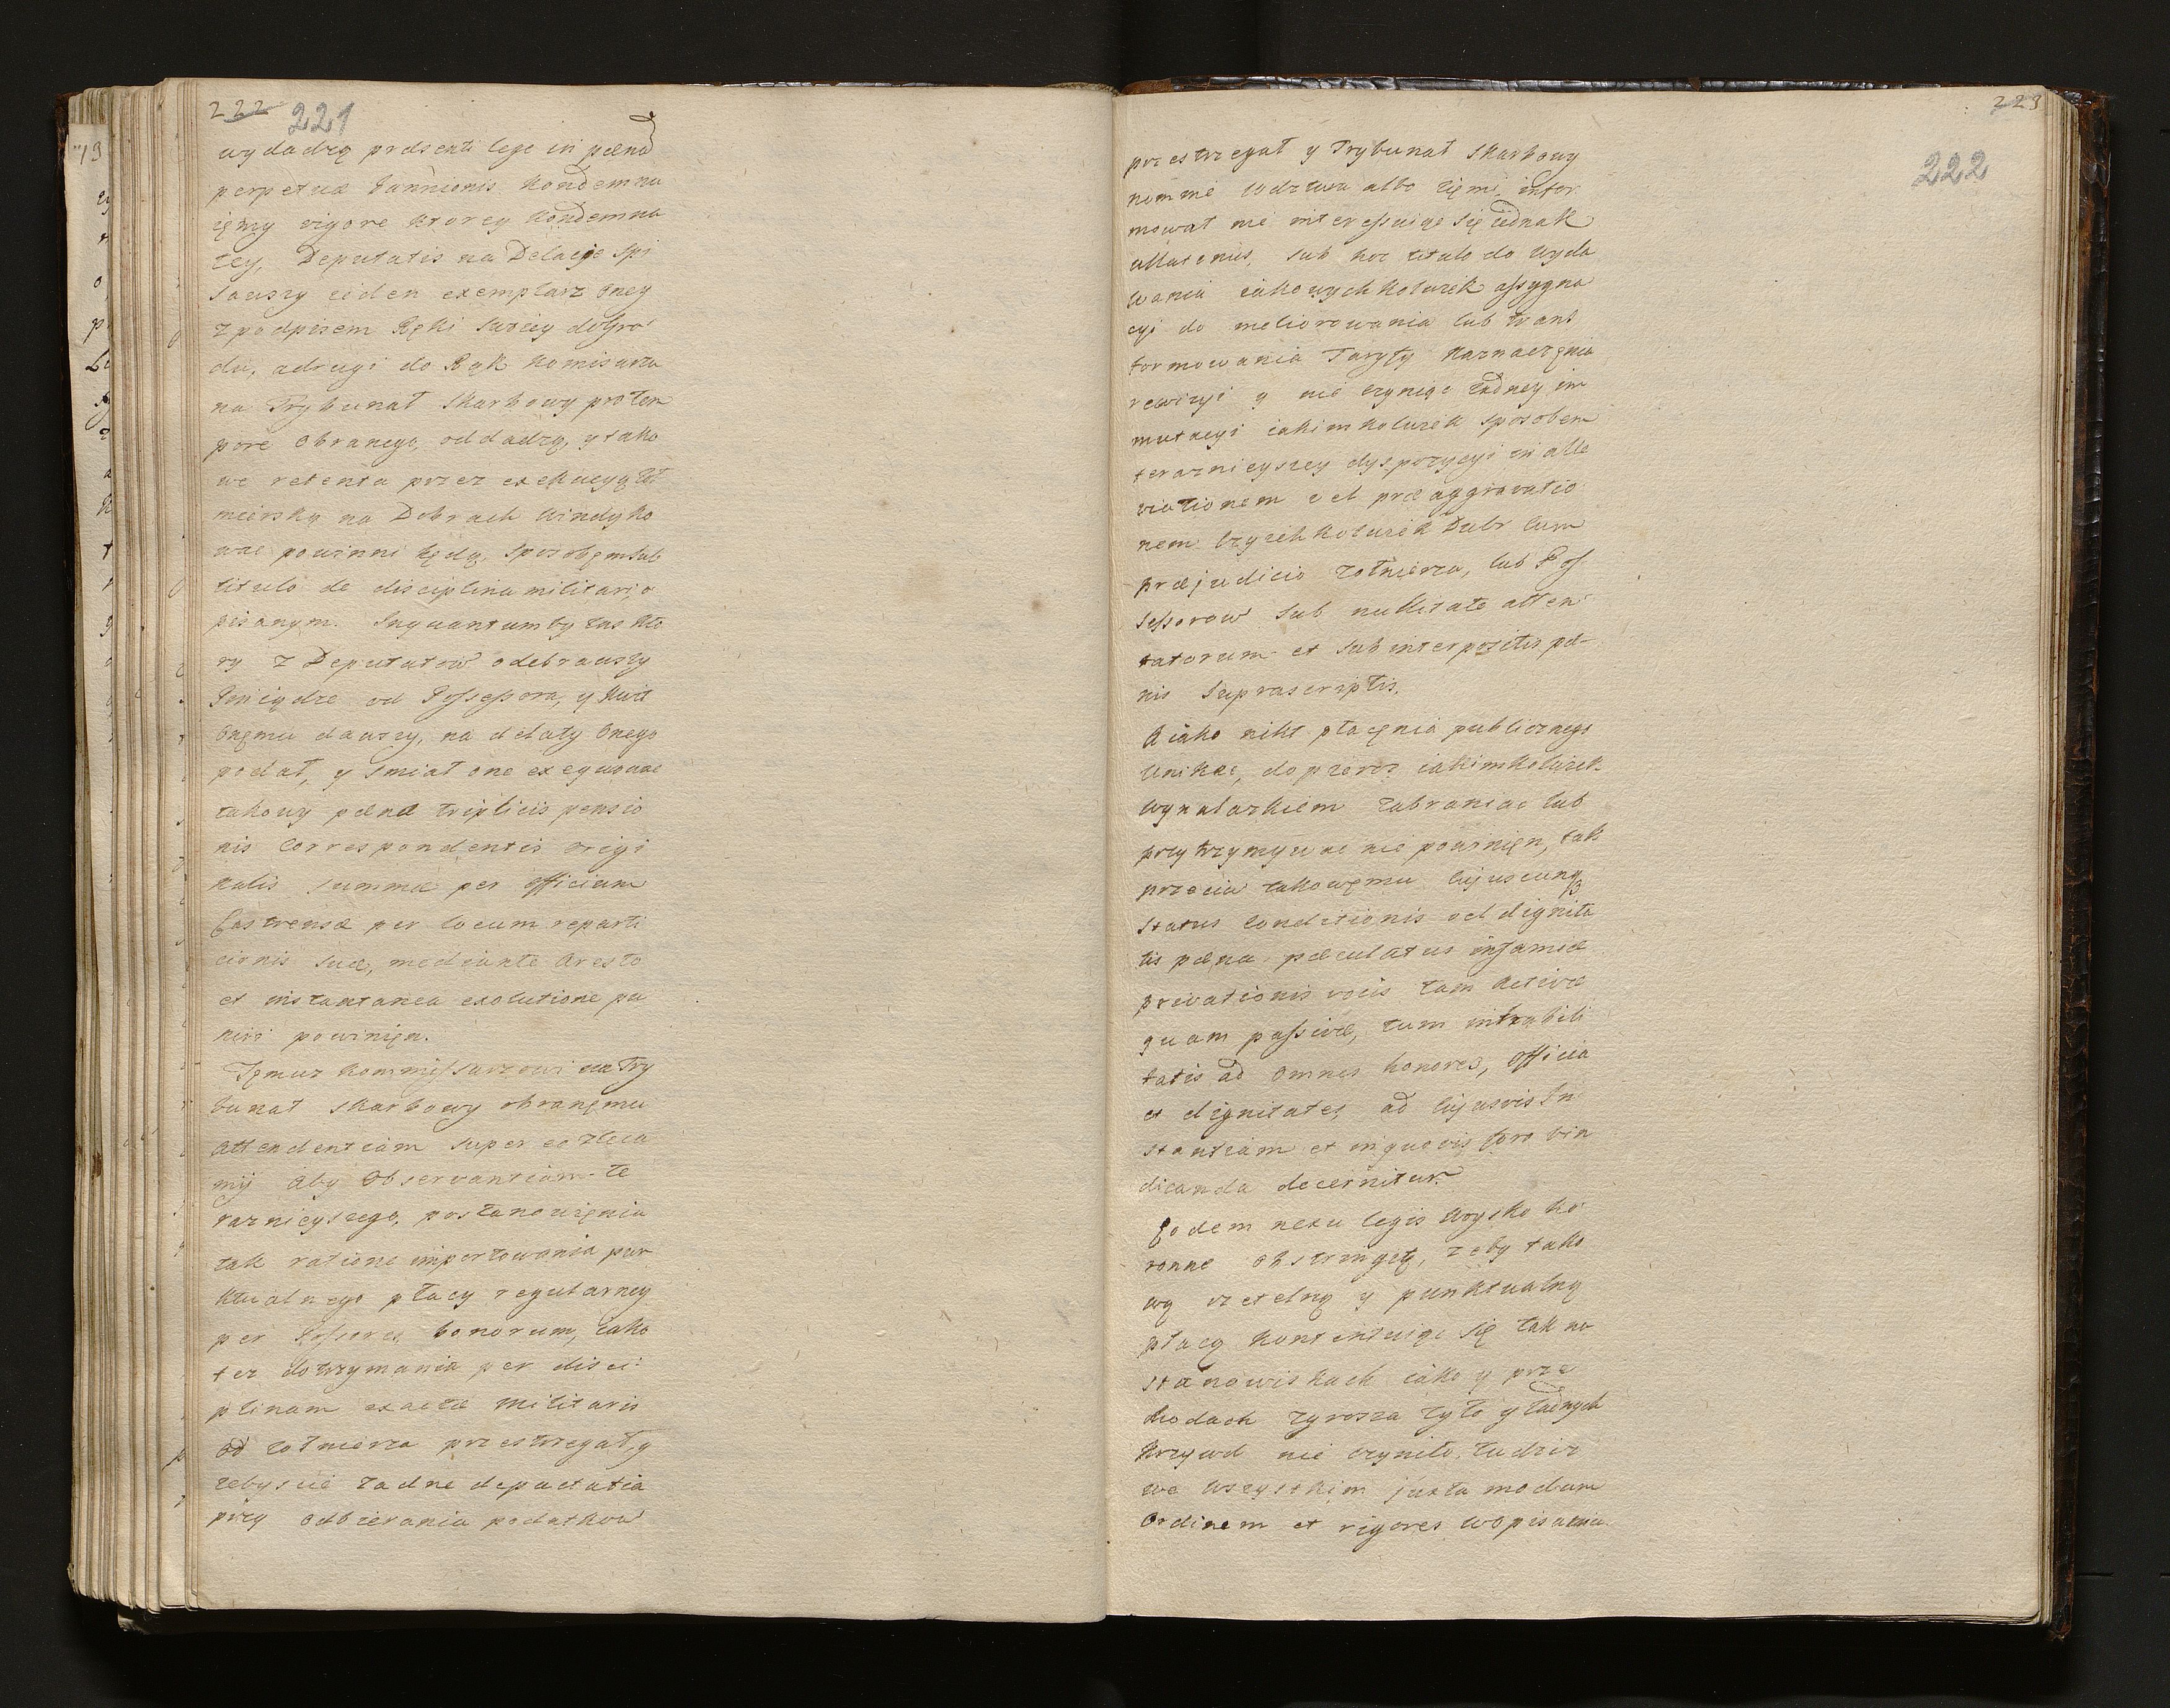 222 221
wydadzą præsenti lege in pœnã
perpetuæ bannionis kondemnu
ięmy vigore ktorey kondemna
tey, Deputatis na Delacÿe Spi
sawszy ieden exemplarz oney
z podpisem Ręki swoiey do Gro
du, a drugi do Rąk komisarza
na Trybunał Skarbowy pro tem
pore obranego, oddadzą, y tako
we retenta przez exekucyą żoł
nierską na Dobrach windyko
wac powinni będą, sposobem sub
titulo de disciplina militari, o
pisanym. Inquantum by zas kto
ry z Deputatow odebrawszy
Pieniądze od Possessora, y kwit
onęmu dawszy, na delaty onego
podał, y smiał one exequowac
takowy pœnæ triplicis pensio
nis Correspondentis origi
nalis summæ per officium
Castrense per locum reparti
cionis suæ, mediante Aresto
et instantanea exolutione pu
niri powinięn.
Tęmuz kommissarzowi na Try
bunał skarbowy obranęmu
attendentiam super eo zleca
my aby observantiam te
raznieyszego, postanowięnia
tak ratione importowania pun
ktualnego płacy regularney
per Possores bonorum, iako
tez dotrzymania per disci:
plinam exactæ militaris
od zołnierza przestrzegał, y
zeby sie zadne depactatia
przy odbierania podatkow
223
222
przestrzegał y Trybunał Skarbowy
nomine Wdztwa albo zięmi, infor
mował nie interessuiąc się iednak
ullatenus, sub hoc titulo do wyda
wania iakowych kolwiek assygna
cyi do meliorowania lub trans
formowania Taryfy Naznaczęnia
rewizyi y nie czyniąc zadney im
mutacyi iakimkolwiek sposobem
teraznieyszey dyspozycyi in alle
viationem vel præaggravatio
nem czyichkolwiek Dobr cum
præjudicio zołnierza, lub Pos
sessorow sub nullitate atten
tatorum et sub interpositis pœ-
nis suprascriptis.
A iako nikt płacęnia publicznego
unikac, do przewoz iakimkolwiek
wynalazkiem zabraniac lub
przytrzymywac nie powinięn, tak
przeciw takowęmu cujuscunqз
status conditionis vel dignita
tis pœna peculatus infamiæ
privationis vocis tam activæ
quam passivæ, tum inhabili
tatis ad omnes honores, officia
et dignitates, ad cujusvis In
stantiam et in quovis foro vin
dicanda decernitur.
Eodem nexu legis Woysko ko
ronne obstringit, zeby tako
wą rzetelną y punktualną
płacą kontentuiąc się tak na
stanowiskach iako y prze
chodach z grosza zyło y zadnych
krzywd nie czyniło, tudziez
we wszystkim juxta modum
ordinem et rigores w opisaniu